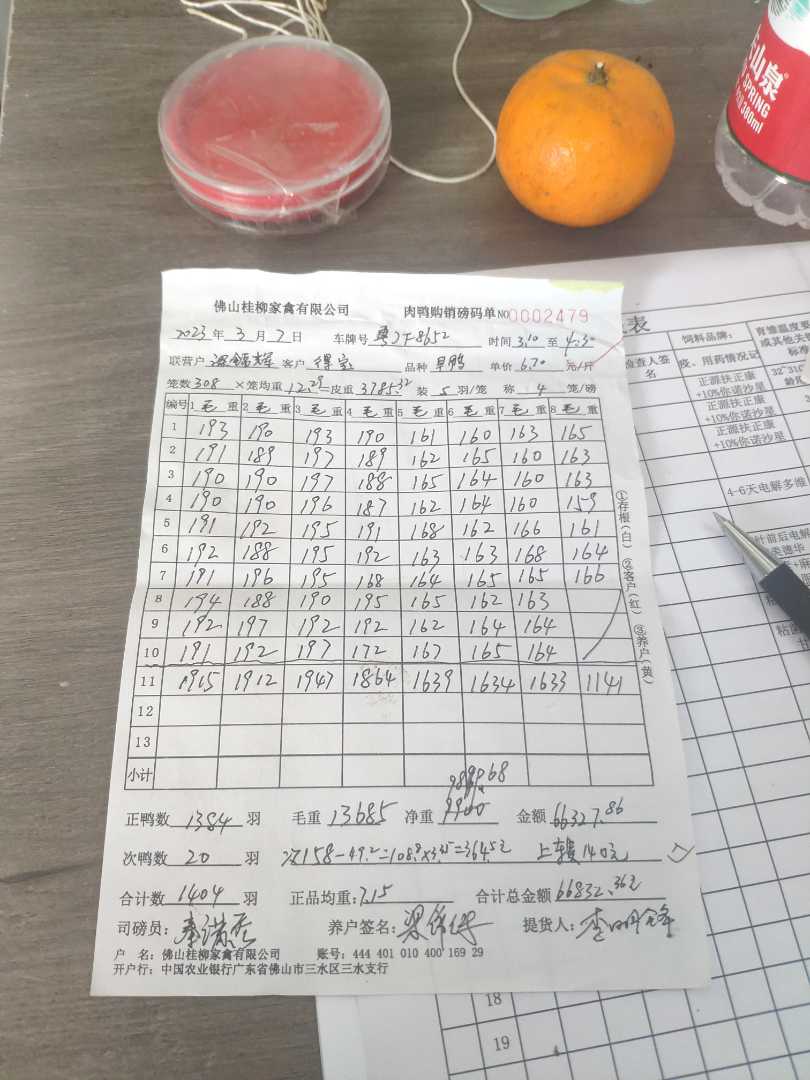 山泉
SPRING
380ml
佛山桂柳家禽有限公司 肉鸭购销磅码单 NO 0002479
2023 年 3 月 7 日 车牌号 时间 3.10 至 4:30
联营户 客户 得宝 品种 单价 6.70 元/斤
笼数 308 ×笼均重 12.29 =皮重 3785.32 装 5 羽/笼 称 4 笼/磅
编号 1 毛 重 2 毛 重 3 毛 重 4 毛 重 5 毛 重 6 毛 重 7 毛 重 8 毛 重
1 193 190 193 190 161 160 163 165
2 191 189 197 189 162 165 160 163
3 190 190 197 188 165 164 160 163
4 190 190 196 187 162 164 160 159
5 191 192 195 191 168 162 166 161
6 192 188 195 192 163 163 168 164
7 191 196 195 168 164 165 165 166
8 194 188 190 195 165 162 163
9 192 197 192 192 162 164 164
10 191 192 197 172 167 165 164
11 1915 1912 1947 1864 1639 1634 1633 1141
12
13
小计
①存根(白) ②客户(红) ③养户(黄)
正鸭数 1384 羽 毛重 13685 净重 9900 金额 66327.86
次鸭数 20 羽 次158-49.2=108.8×3.35=364.5元 140元
合计数 1404 羽 正品均重: 7.15 合计总金额 66832.36元
司磅员: 养户签名: 提货人:
户 名: 佛山桂柳家禽有限公司 账号: 444 401 010 400 169 29
开户行: 中国农业银行广东省佛山市三水区三水支行
表
检查人签名
饲料品牌:
疫、用药情况记
育雏温度要
或其他关
标准
正源扶正康
+10%你诺沙星
正源扶正康
+10%你诺沙星
正源扶正康
+10%你诺沙星
32°
4-6天电解多维
针前后电解
18
19